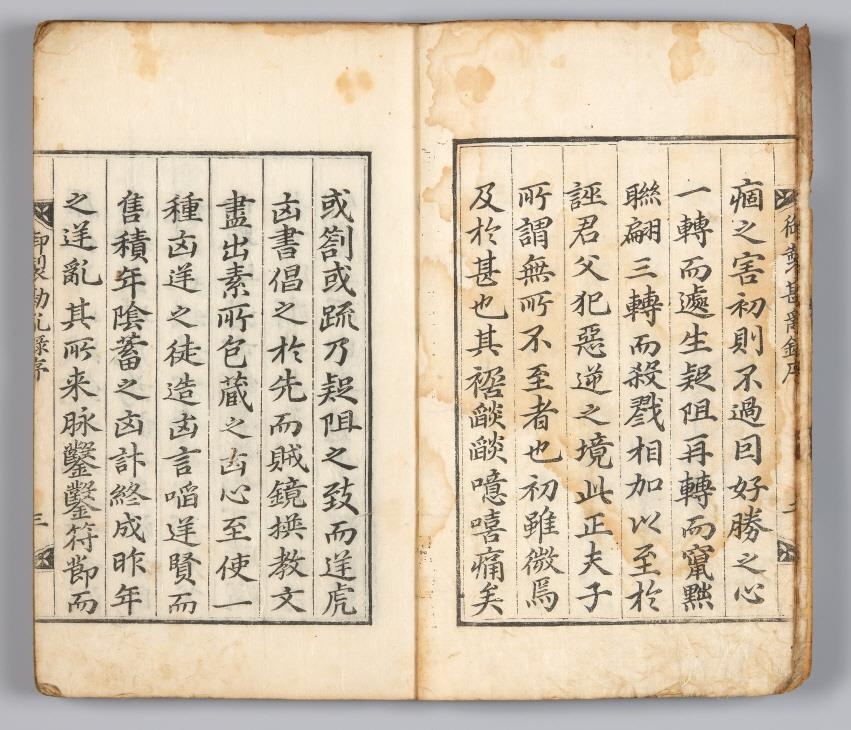 痼之害初則不過因好勝之心
一轉而遽生疑阻再轉而竄黜
聮翩三轉而殺戮相加以至於
誣君父犯惡逆之境此正夫子
所謂無所不至者也初雖微焉
及於甚也其褶燄燄噫嘻痛矣
御製勘亂錄序
或劄或疏乃疑阻之致而逆虎
凶書倡之於先而賊鏡換教文
盡出素所包藏之凶心至使一
種凶逆之徒造凶言啗逆賢而
售積年陰蓄之凶計終成昨年
之逆亂其所来脉鑿鑿符節而
御製勘亂錄序
三